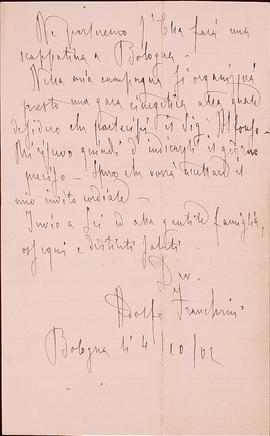 Ne piaceremo s' Ella farà una
scappatina a Bologna.
Nella mia campagna si organizzerà
presto una gara cinegetica alla quale
desidero che partecipi il Sig. Alfonso.
Mi riservo quindi d' indicargli il giorno
preciso. Spero che vorrà accettare il
mio invito cordiale.
Invio a Lei ed alla gentile famiglia,
ossequi e distinti saluti.
Dev.
Adolfo Franchini
Bologna li 4/10/02